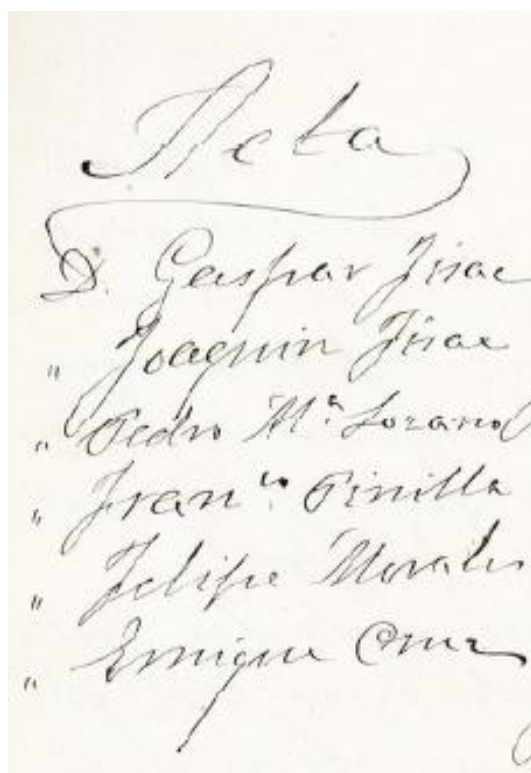 Acta
D. Gaspar Jisac
" Joaquin Jisac
" Pedro M.ª Lozano
" Fran.co Pinilla
" Felipe Morales
" Enrique Cruz